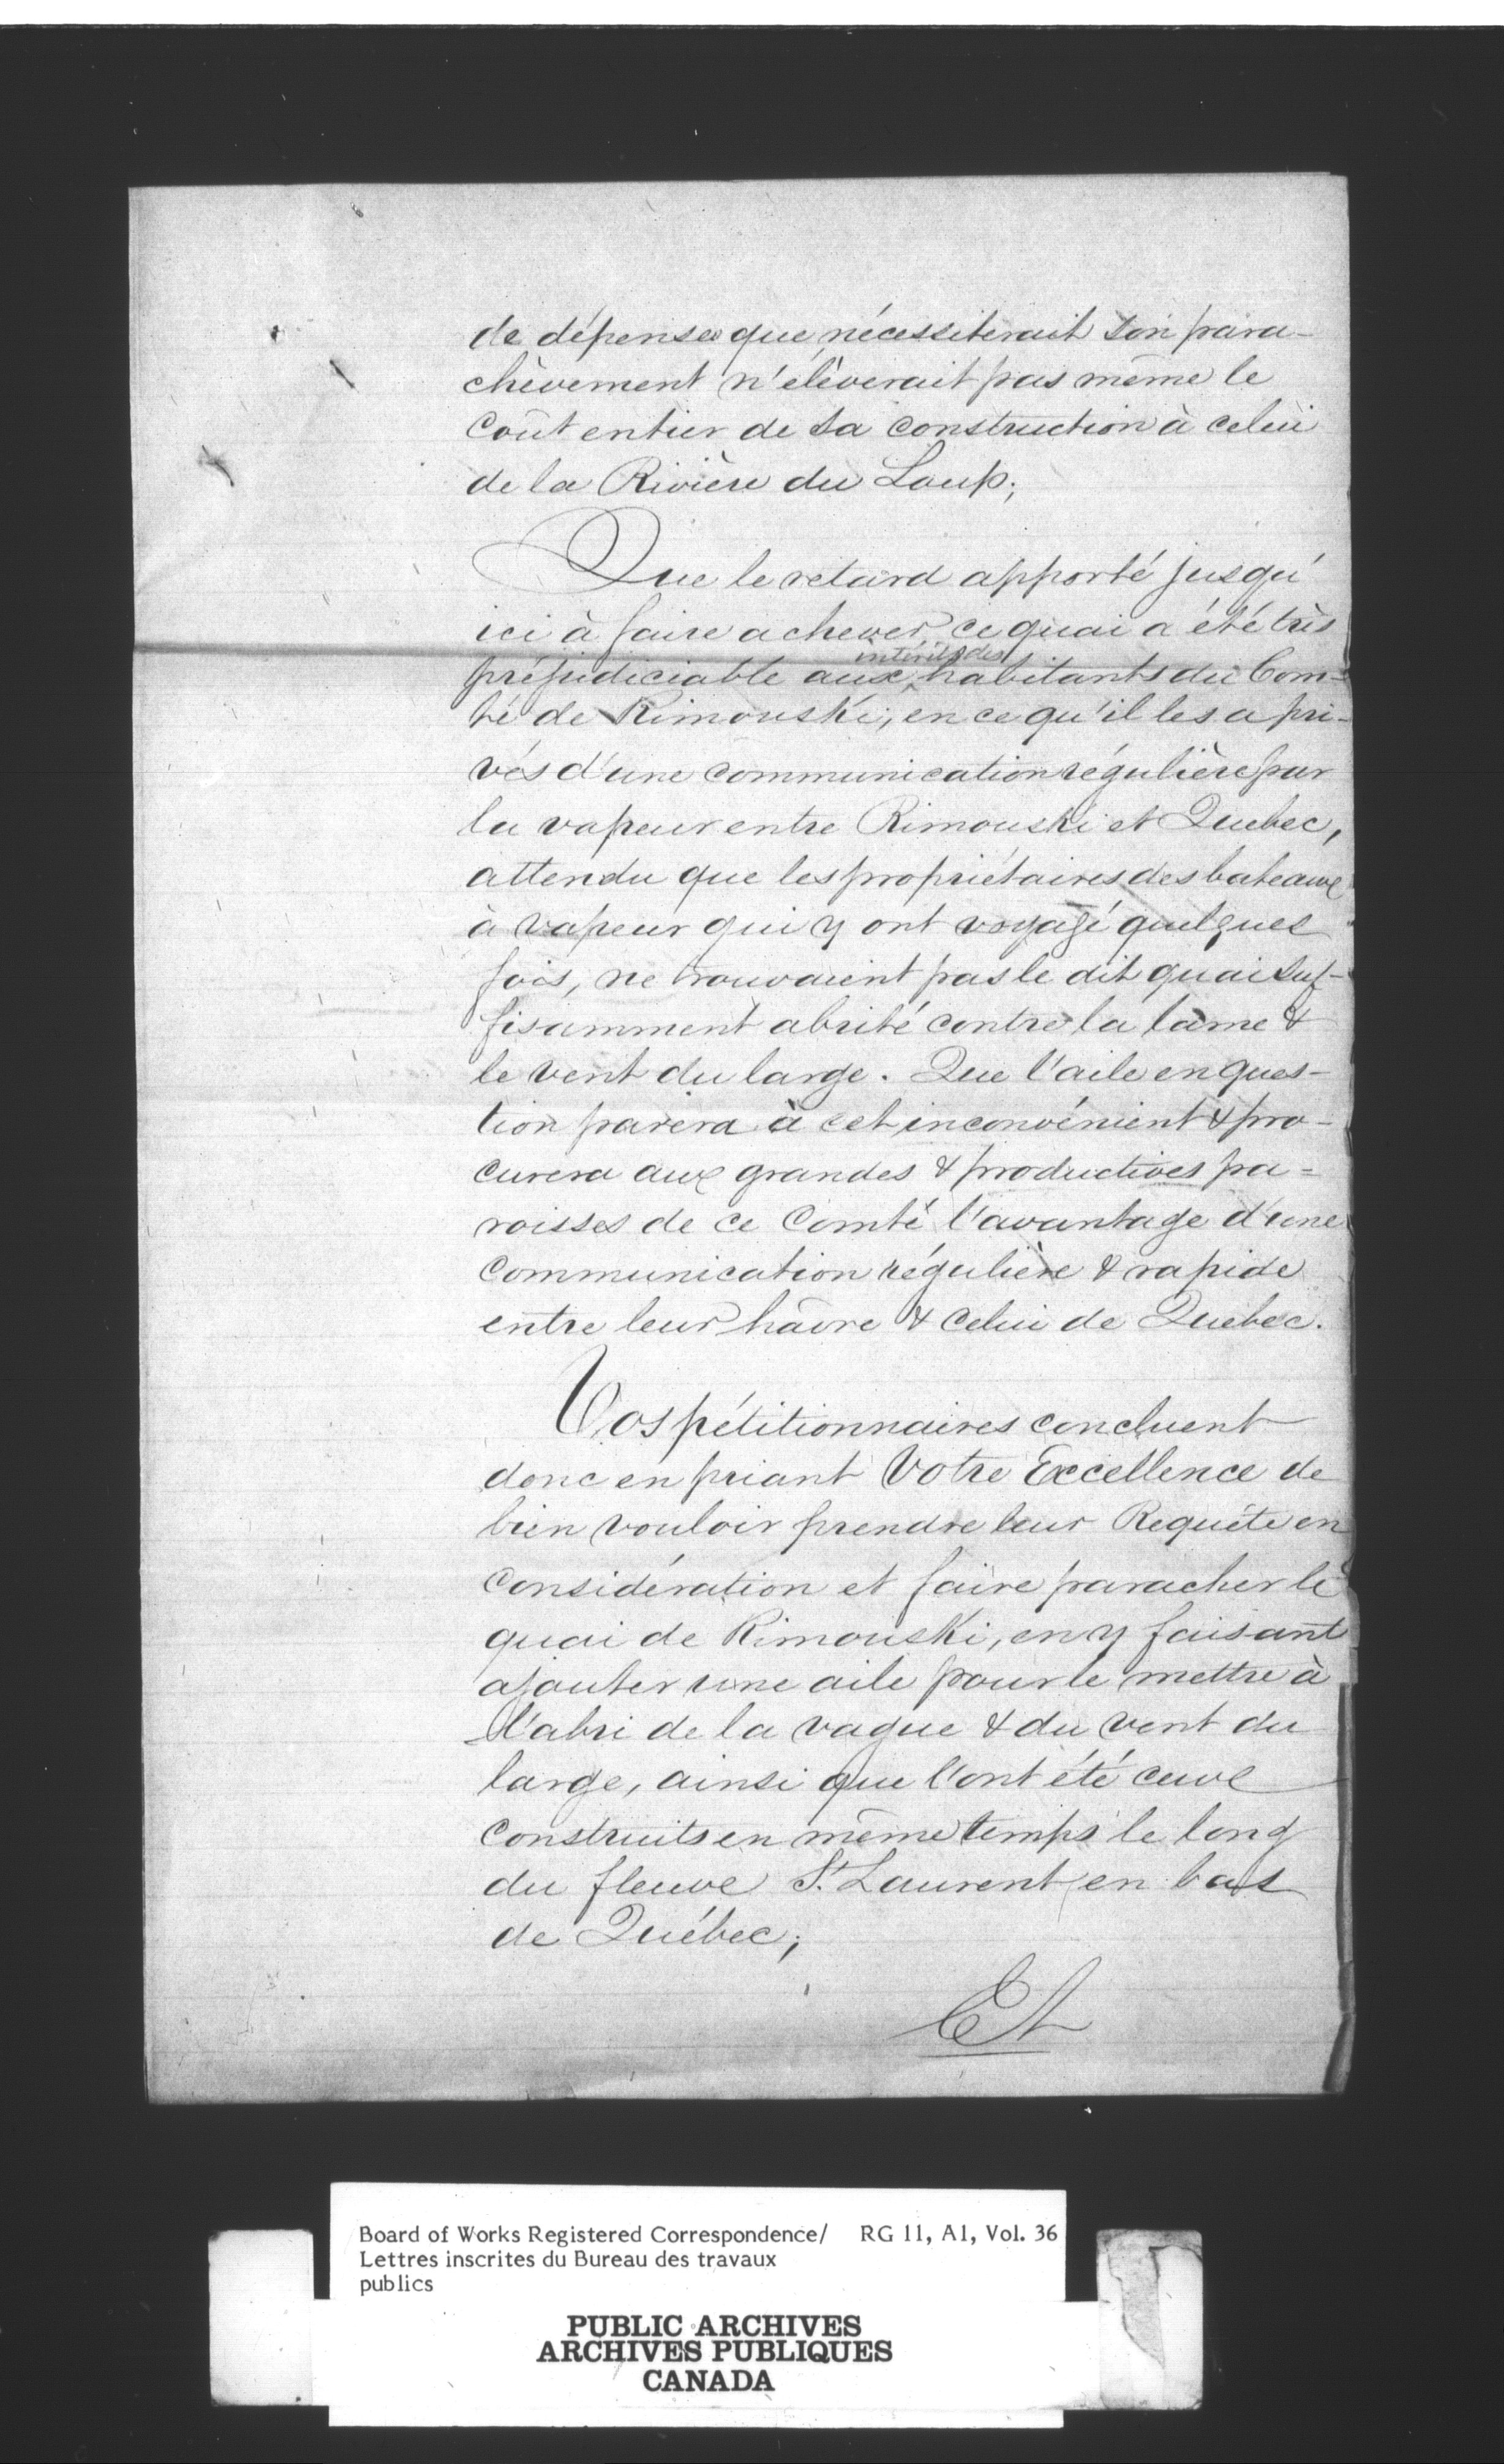 de dépense que nécessiterait son para-
chèvement n'élèverait pas même le
coût entier de sa construction à celui
de la Rivière du Loup;
Que le retard apporté jusqu'
ici à faire achever ce quai a été très
intérêts des
préjudiciable aux habitants du Com-
té de Rimouski, en ce qu'il les a pri-
vés d'une communication régulière par
la vapeur entre Rimouski et Quebec,
attendu que les propriétaires des bateaux
à vapeur qui y ont voyagé quelques
fois, ne trouvaient pas le dit quai suf-
fisamment abrité contre la lame &
le vent du large. Que l'aile en ques-
tion parera à cet inconvénient & pro-
curera aux grandes & productives pa-
roisses de ce Comté l'avantage d'une
communication régulière & rapide
entre leur hâvre & celui de Quebec.
Vos pétitionnaires concluent
donc en priant Votre Excellence de
bien vouloir prendre leur Requête en
considération et faire paracher le
quai de Rimouski, en y faisant
ajouter une aile pour le mettre à
l'abri de la vague & du vent du
large, ainsi que l'ont été ceux
construits en même temps le long
du fleuve St. Laurent en bas
de Québec;
Et
Board of Works Registered Correspondence/ RG 11, A1, Vol. 36
Lettres inscrites du Bureau des travaux
publics
PUBLIC ARCHIVES
ARCHIVES PUBLIQUES
CANADA